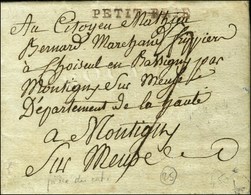 PETIT
Au Citoyen Mathieu
Bernard Marchand
a Choiseul en Bassigny par
Montigny Sur Meuse
Département de la haute
a Montigny
Sur Meuse